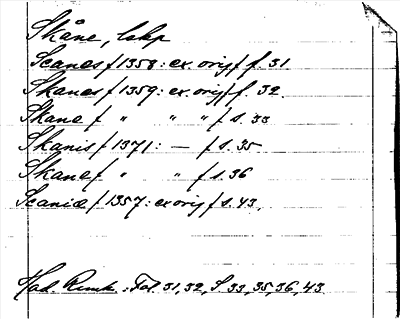 Skåne, lskp
Scanes f 1358: ex. orig f f. 31.
Skanes f 1359: ex. orig f f. 32.
Skane f " " " f s. 33
Skanis f 1371: — f s. 35
Skane f " " f s. 36
Scaniæ f 1357: ex orig f s. 43.
Had. Rimk.: Fol. 31, 32, S. 33, 35, 36, 43